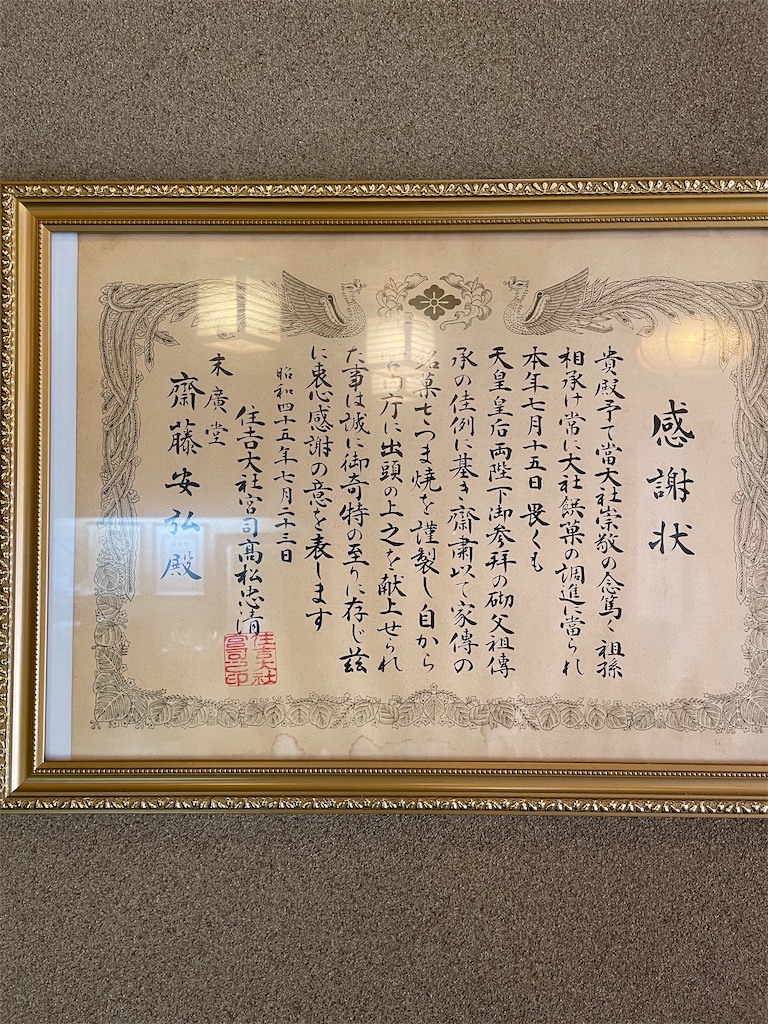 感謝状
貴殿予て當大社崇敬の念篤く祖孫
相承け常に大社饌菓の調進に當られ
本年七月十五日畏くも
天皇皇后両陛下御参拝の砌父祖傳
承の佳例に基き齋粛以て家傳の
名菓さつま焼を謹製し自から
庁に出頭の上之を献上せられ
た事は誠に御奇特の至りに存じ茲
に衷心感謝の意を表します
昭和四十五年七月二十三日
住吉大社宮司髙松忠清
住吉大社宮司之印
末廣堂
齋藤安弘殿